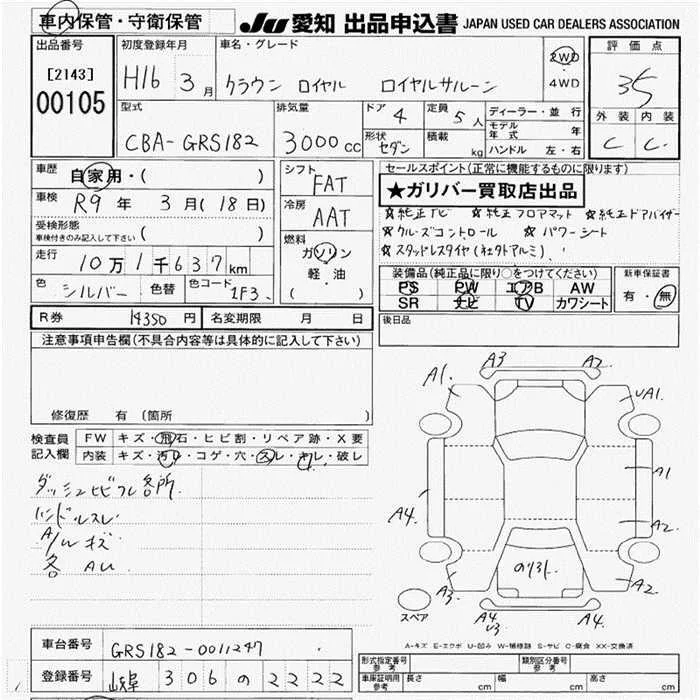 車内保管・守衛保管
JU 愛知 出品申込書 JAPAN USED CAR DEALERS ASSOCIATION
出品番号
[2143]
00105
初度登録年月
H16 3月
車名・グレード
クラウン ロイヤル ロイヤルサルーン
2WD
・
4WD
評価点
3.5
外装 内装
C C
型式
CBA-GRS182
排気量
3000cc
ドア 4
定員 5人
形状 セダン
積載 kg
ディーラー・並行
モデル年式 年
ハンドル 左・右
車歴 自家用・( )
車検 R9年 3月(18日)
受検形態
車検付きのみ記入して下さい ( )
走行 10万1千637km
色 シルバー 色替 色コード 1F3
シフト FAT
冷房 AAT
燃料
ガソリン
軽・油
( )
セールスポイント(正常に機能するものに限ります)
★ガリバー買取店出品
☆純正TV ☆純正フロアマット ☆純正ドアバイザー
☆クルーズコントロール ☆パワーシート
☆スタッドレスタイヤ(社外アルミ)
装備品(純正品に限り○をつけてください)
PS PW エアB AW
SR ナビ TV カワシート
新車保証書
有・無
後日品
R券 19350円 名変期限 月 日
注意事項申告欄(不具合内容等は具体的に記入して下さい)
修復歴 有(箇所 )
検査員記入欄
FW キズ・飛石・ヒビ割・リペア跡・X要
内装 キズ・汚れ・コゲ・穴・スレ・ヤレ・破レ
ダッシュヒビワレ各所.
ハンドルスレ
A/Wキズ
各AU
A1. A3 A2. UA1.
A1
A2
A4.
A3 A2
A4
U3
A4
スペア
A-キズ E-エクボ U-凹み W-補修跡 S-サビ C-腐食 XX-交換済
車台番号 GRS182-0011247
登録番号 岐阜 306 の 2222
形式指定番号 参考
類別区分番号 参考
車庫証明用 参考 長さ cm 幅 cm 高さ cm